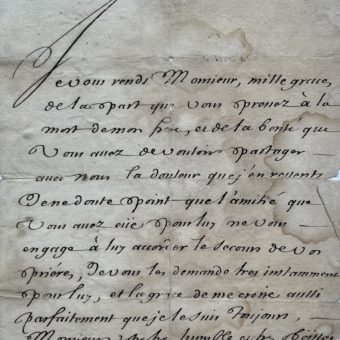 Je vous rends Monsieur, mille graces,
de la part que vous prenez à la
mort de mon frere, et de la bonté que
vous avez de vouloir partager
avec nous la douleur que j'en ressents
Je ne doute point que l'amitié que
vous avez eüe pour luy ne vous
engage à luy accorder le secours de vos
prieres, Je vous les demande tres instamment
pour luy, et la grace de me croire aussi
parfaitement que je le suis Toujours,
Monsieur